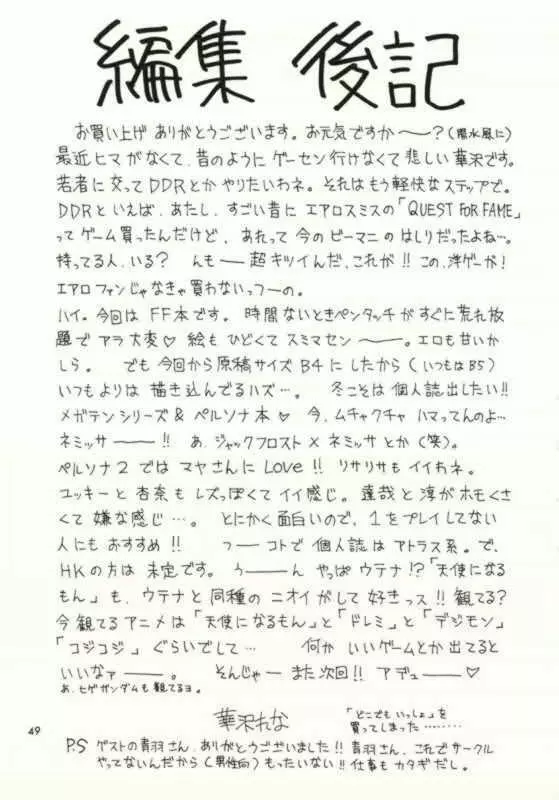 編集 後記
お買い上げ ありがとうございます。お元気ですか〜?(陽水風に)
最近ヒマがなくて、昔のようにゲーセン行けなくて悲しい華沢です。
若者に交ってDDRとかやりたいわネ。それはもう軽快なステップで。
DDRといえば、あたし、すごい昔にエアロスミスの「QUEST FOR FAME」
ってゲーム買ったんだけど、あれって今のビーマニのはしりだったよね…。
持ってる人、いる? んも――超キツイんだ、これが!!この、洋ゲーが!
エアロファンじゃなきゃ買わないっつーの。
ハイ。今回はFF本です。時間ないときペンタッチがすぐに荒れ放
題でアラ大変♡絵もひどくてスミマセン――。エロも甘いか
しら。 でも今回から原稿サイズB4にしたから(いつもはB5)
いつもよりは描き込んでるハズ…。 冬こそは個人誌出したい!!
メガテンシリーズ&ペルソナ本♡ 今、ムチャクチャハマってんのよ…
ネミッサ――!! あ、ジャックフロスト×ネミッサとか(笑)。
ペルソナ2ではマヤさんにLove!!リサリサもイイわネ。
ユッキーと杏奈もレズっぽくてイイ感じ。達哉と淳がホモくさ
くて嫌な感じ…。とにかく面白いので、1をプレイしてない
人にもおすすめ!! つーコトで個人誌はアトラス系。で、
HKの方は未定です。う――ん やっぱウテナ!?「天使になる
もん」も、ウテナと同種のニオイがして好きっス!!観てる?
今観てるアニメは「天使になるもん」と「ドレミ」と「デジモン」
「コジコジ」ぐらいでして… 何かいいゲームとか出てると
いいなァ――。 そんじゃ―また次回!! アデュ――♡
あ、ヒゲガンダムも観てるヨ。
華沢れな
「どこでもいっしょ」を
買ってしまった………
49
P.S ゲストの青羽さん、ありがとうございました!!青羽さん、これでサークル
やってないんだから(男性向)もったいない!!仕事もカタギだし。